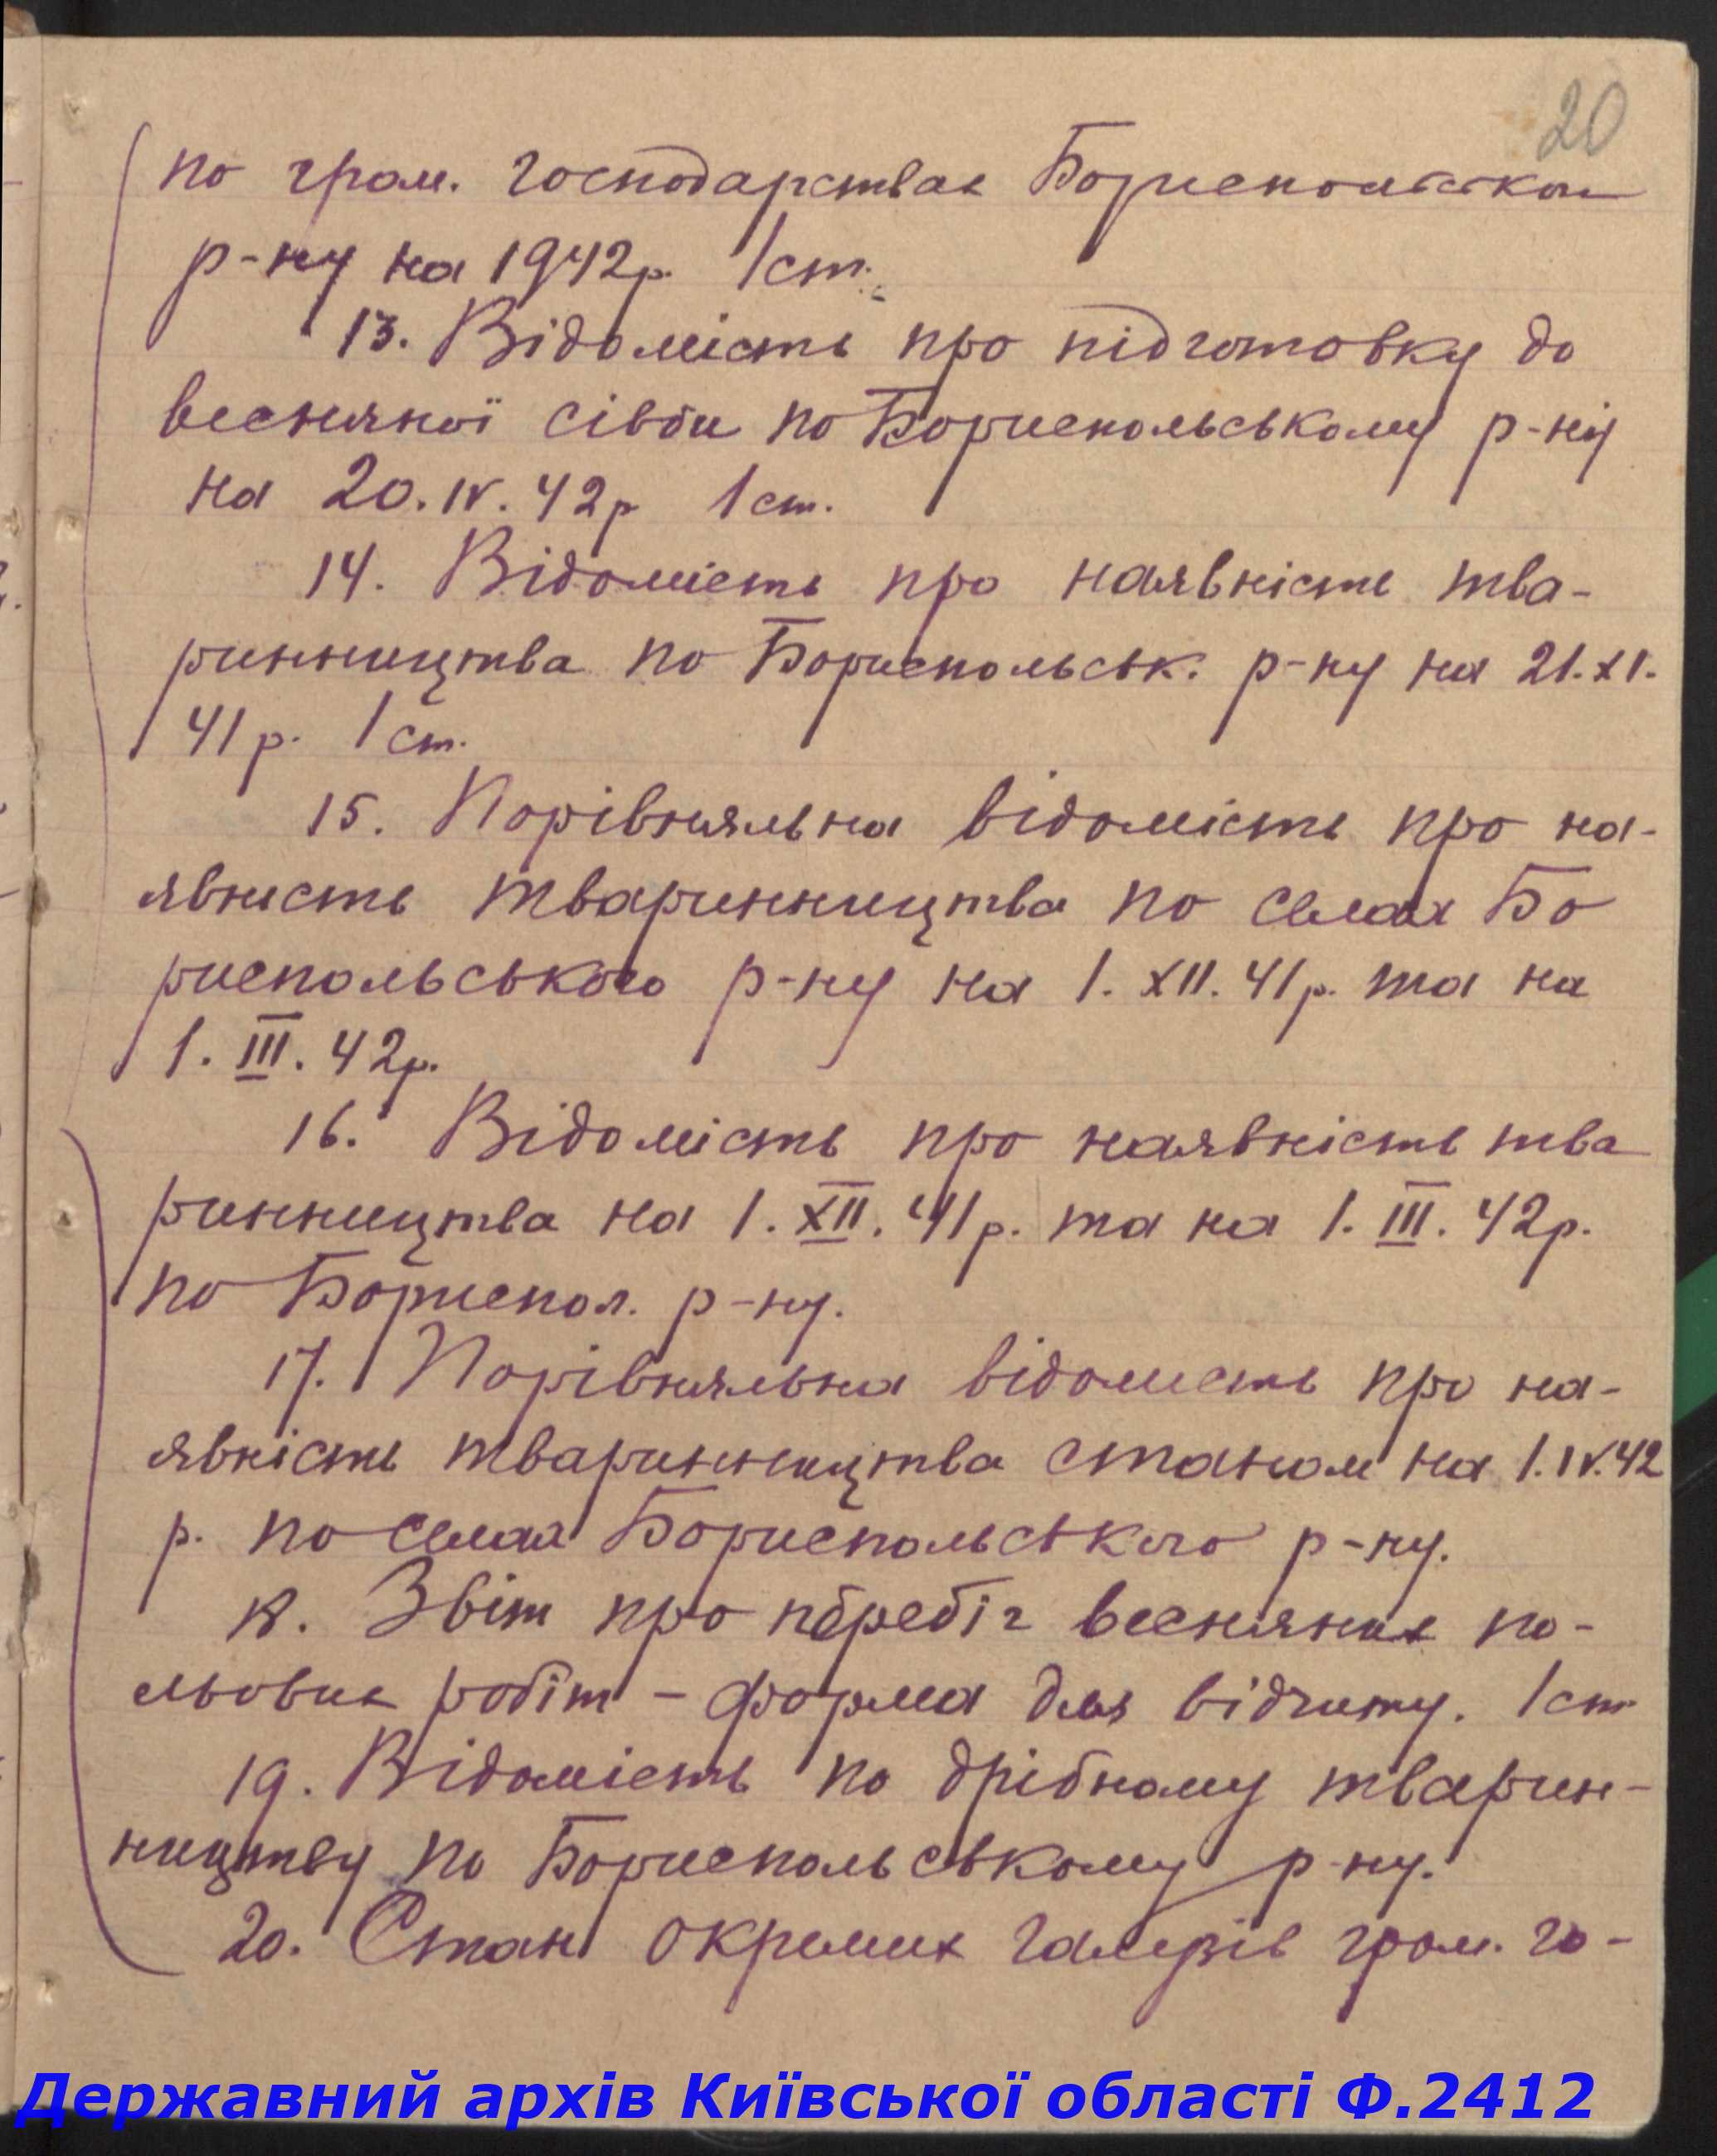 20
по гром. господарствах Бориспольськом
р-ну на 1942р. 1 ст.
13. Відомість про підготовку до
весняної сівби по Бориспольському р-ну
на 20.IV.42р 1 ст.
14. Відомість про наявність тва-
ринництва по Бориспольськ. р-ну на 21.XI.
41р. 1 ст.
15. Порівняльна відомість про на-
явність тваринництва по селах Бо
риспольського р-ну на 1.XII.41р. та на
1.III.42р.
16. Відомість про наявність тва
ринництва на 1.XII.41р. та на 1.III.42р.
по Борispол. р-ну.
17. Порівняльна відомість про на-
явність тваринництва станом на 1.IV.42
р. по селах Бориспольського р-ну.
18. Звіт про перебіг весняних по-
льових робіт – форма для відчиту. 1 ст
19. Відомість по дрібному тварин-
ництву по Бориспольському р-ну.
20. Стан окремих галузів гром. го-
Державний архів Київської області Ф.2412